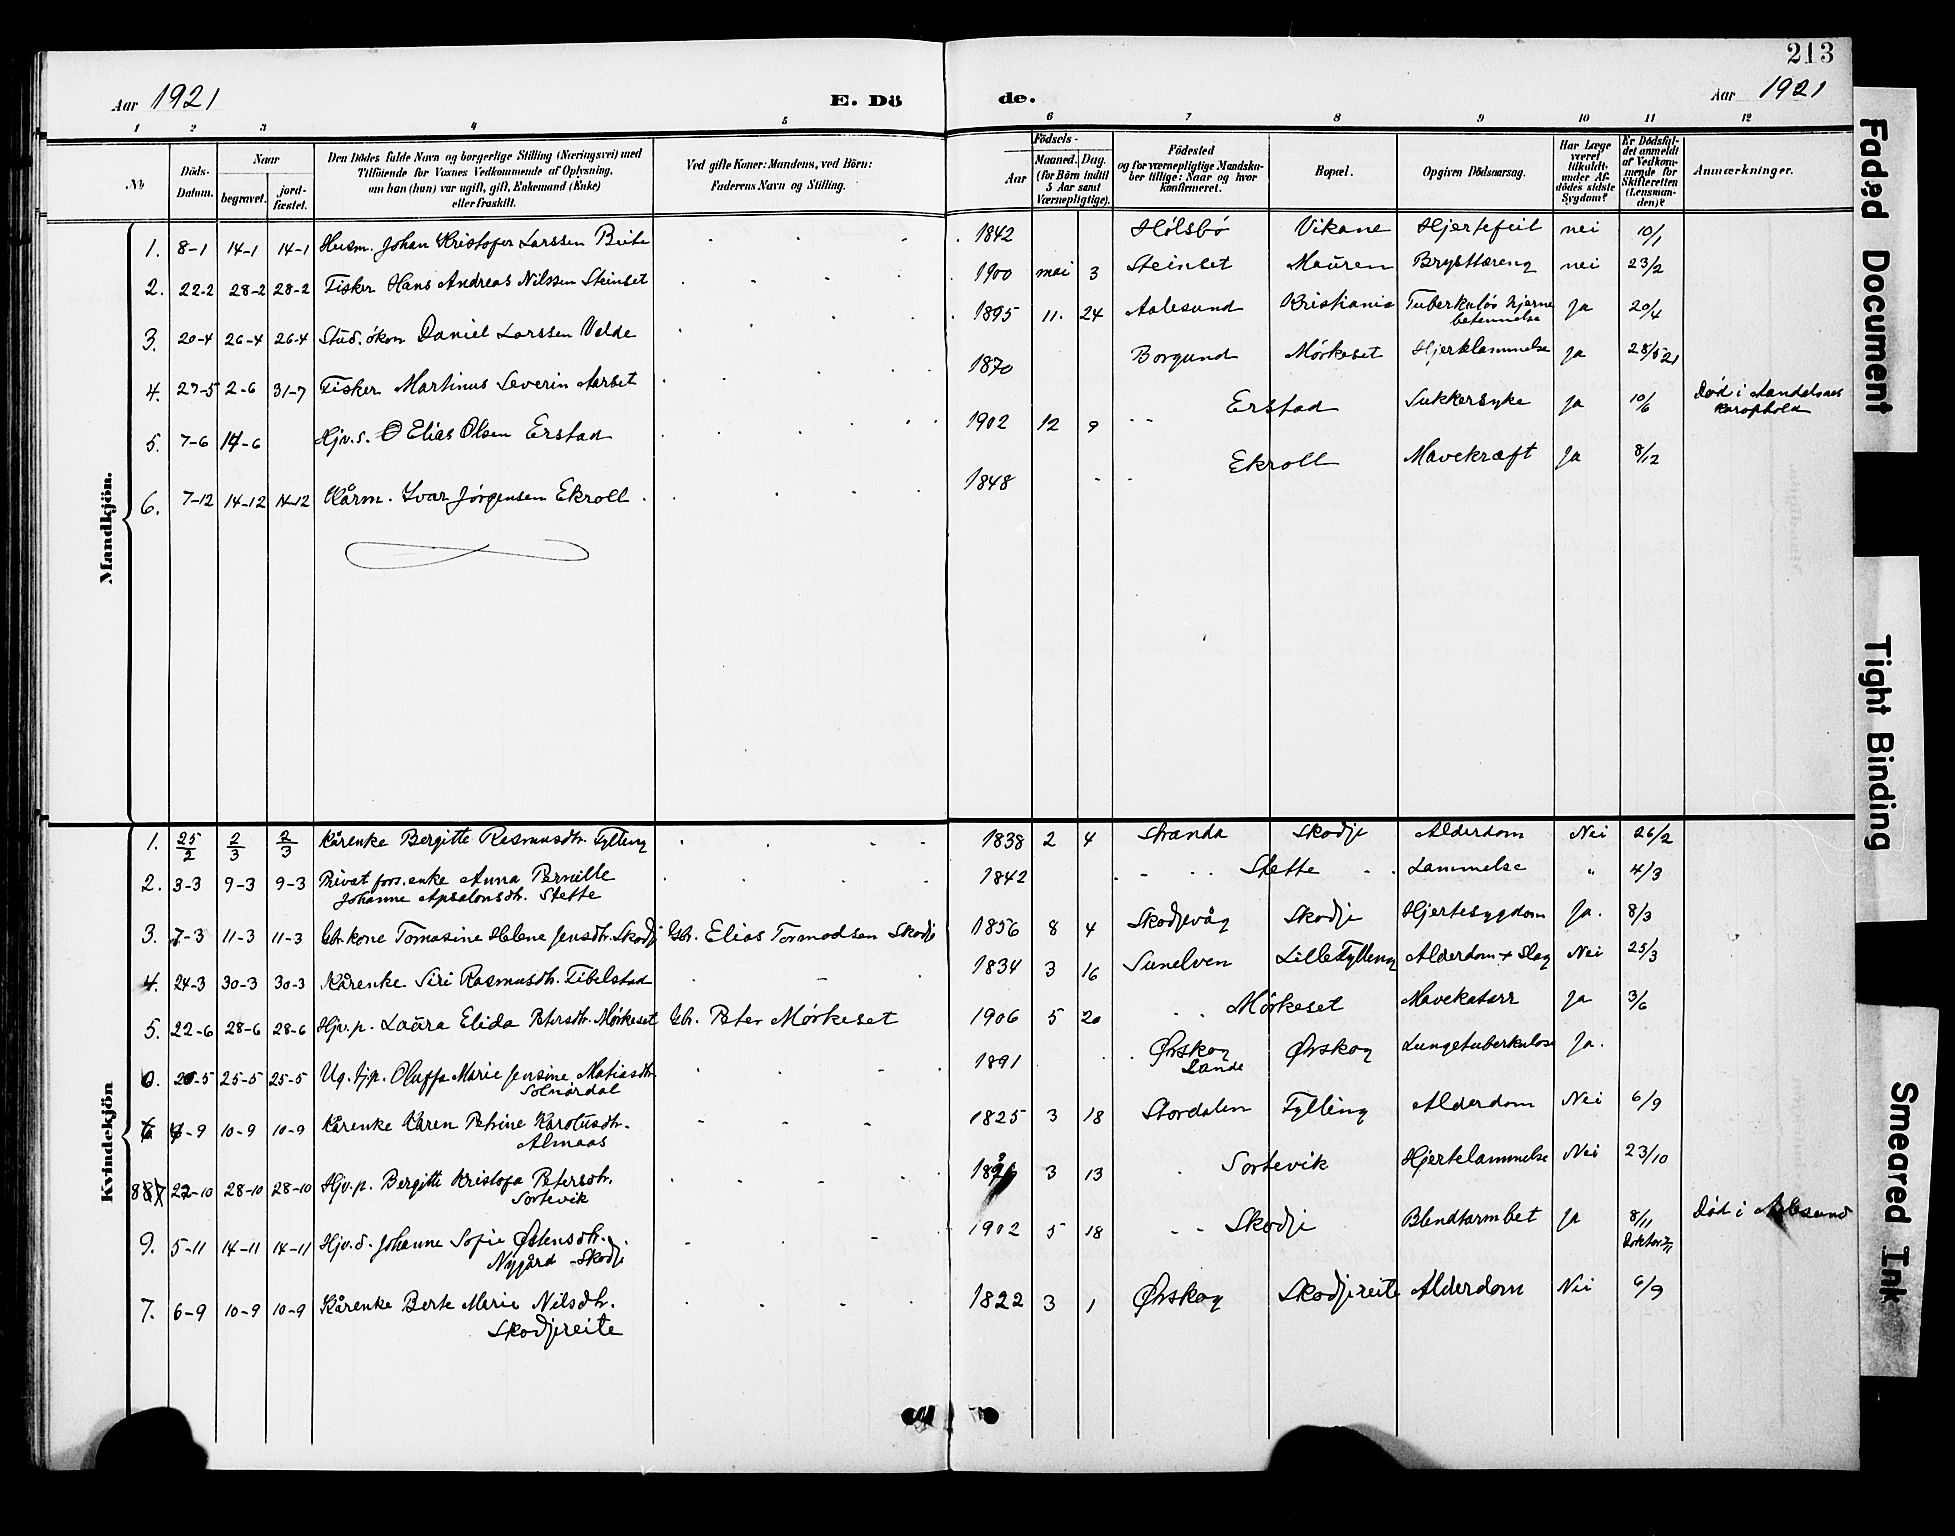 213
Aar 1921 E. Dö de. Aar 1921
1 2 3 4 5 6 7 8 9 10 11 12
No Döds-Datum. Naar begravet. jordfæstet. Den Dödes fulde Navn og borgerlige Stilling (Næringsvei) med Tilföiende for Voxnes Vedkommende af Oplysning, om han (hun) var ugift, gift, Enkemand (Enke) eller fraskilt. Ved gifte Koner: Mandens, ved Börn: Faderens Navn og Stilling. Aar Födsels- Maaned. Dag. (for Börn indtil 5 Aar samt Værnepligtige). Födested og for værnepligtige Mandskaber tillige: Naar og hvor konfirmeret. Bopæl. Opgiven Dödsaarsag. Har Læge været tilkaldt under Afdödes sidste Sygdom? Er Dödsfaldet anmeldt af Vedkommende for Skifteretten (Lensmanden)? Anmærkninger.
Mandkjön.
1. 8-1 14-1 14-1 Husm. Johan Kristofer Larssen 1842 Hølsbø Vikane Hjertefeil nei 10/1
2. 22-2 28-2 28-2 Fisker Hans Andreas Nilssen Steinset 1900 mai 3 Steinset Mauren Brysttæring nei 23/2
3. 20-4 26-4 26-4 Stud. økon Daniel Larssen Valde 1895 11. 24 Aalesund Kristiania Tuberkuløs hjerne betennelse Ja 20/4
4. 27-5 2-6 31-7 Fisker Martinus Severin Aarset 1870 Borgund Mørkeset Hjertelammelse ja 28/5 21
5. 7-6 14-6 Hjv. s. O Elias Olsen Erstad 1902 12 9 Erstad Sukkersyke ja 10/6 Død i Aandalsnes
6. 7-12 14-12 14-12 Kårm. Ivar Jørgensen Ekroll 1848 Ekroll Mavekræft Ja 8/12
Kvindekjön
1. 25/2 2/3 2/3 Kårenke Bergitte Rasmusdtr. Fylling 1838 2 4 Stranda Skodje Alderdom Nei 26/2
2. 3-3 9-3 9-3 Privat fors. enke Anna Pernille 1842 Stette Lammelse " 4/3
Johanne Apsalonsdtr. Stette
3. 7-3 11-3 11-3 Gbr. kone Tomasine Helene Jensdtr. Skodje Gbr. Elias Tormodsen Skodje 1856 8 4 Skodjevåg Skodje Hjertesygdom Ja. 8/3
4. 24-3 30-3 30-3 Kårenke Siri Rasmusdtr. Fibelstad 1834 3 16 Sunelven Lille Fylling Alderdom + Slag Nei 25/3
5. 22-6 28-6 28-6 Hjv. p. Laura Elida Petersdtr. Mørkeset Gbr. Peter Mørkeset 1906 5 20 Mørkeset Mavekatarr Ja 3/6
6. 20-5 25-5 25-5 Ug. tjp. Oluffa Marie Jensine Matiasdtr. 1891 Ørskog Ørskog Lungetuberkulose Ja.
Solnørdal Lande
6-9 10-9 10-9 Kårenke Karen Petrine Karolusdtr. 1825 3 18 Stordalen Fylling Alderdom Nei 6/9
Almaas
8 22-10 28-10 28-10 Hjv. p. Bergitte Kristofa Petersdtr. 3 13 Sortevik Hjertelammelse Nei 23/10
Sortevik
9. 5-11 14-11 14-11 Hjv. d. Johanne Sofie Østensdtr. 1902 5 18 Skodje Blendtarmbet Ja 8/11 Død i Aalesund
Nygård - Skodje Doktor
7. 6-9 10-9 10-9 Kårenke Berte Marie Nilsdtr. 1822 3 1 Ørskog Skodjereite Alderdom Nei 6/9
Skodjereite
Faded Document
Tight Binding
Smeared Ink